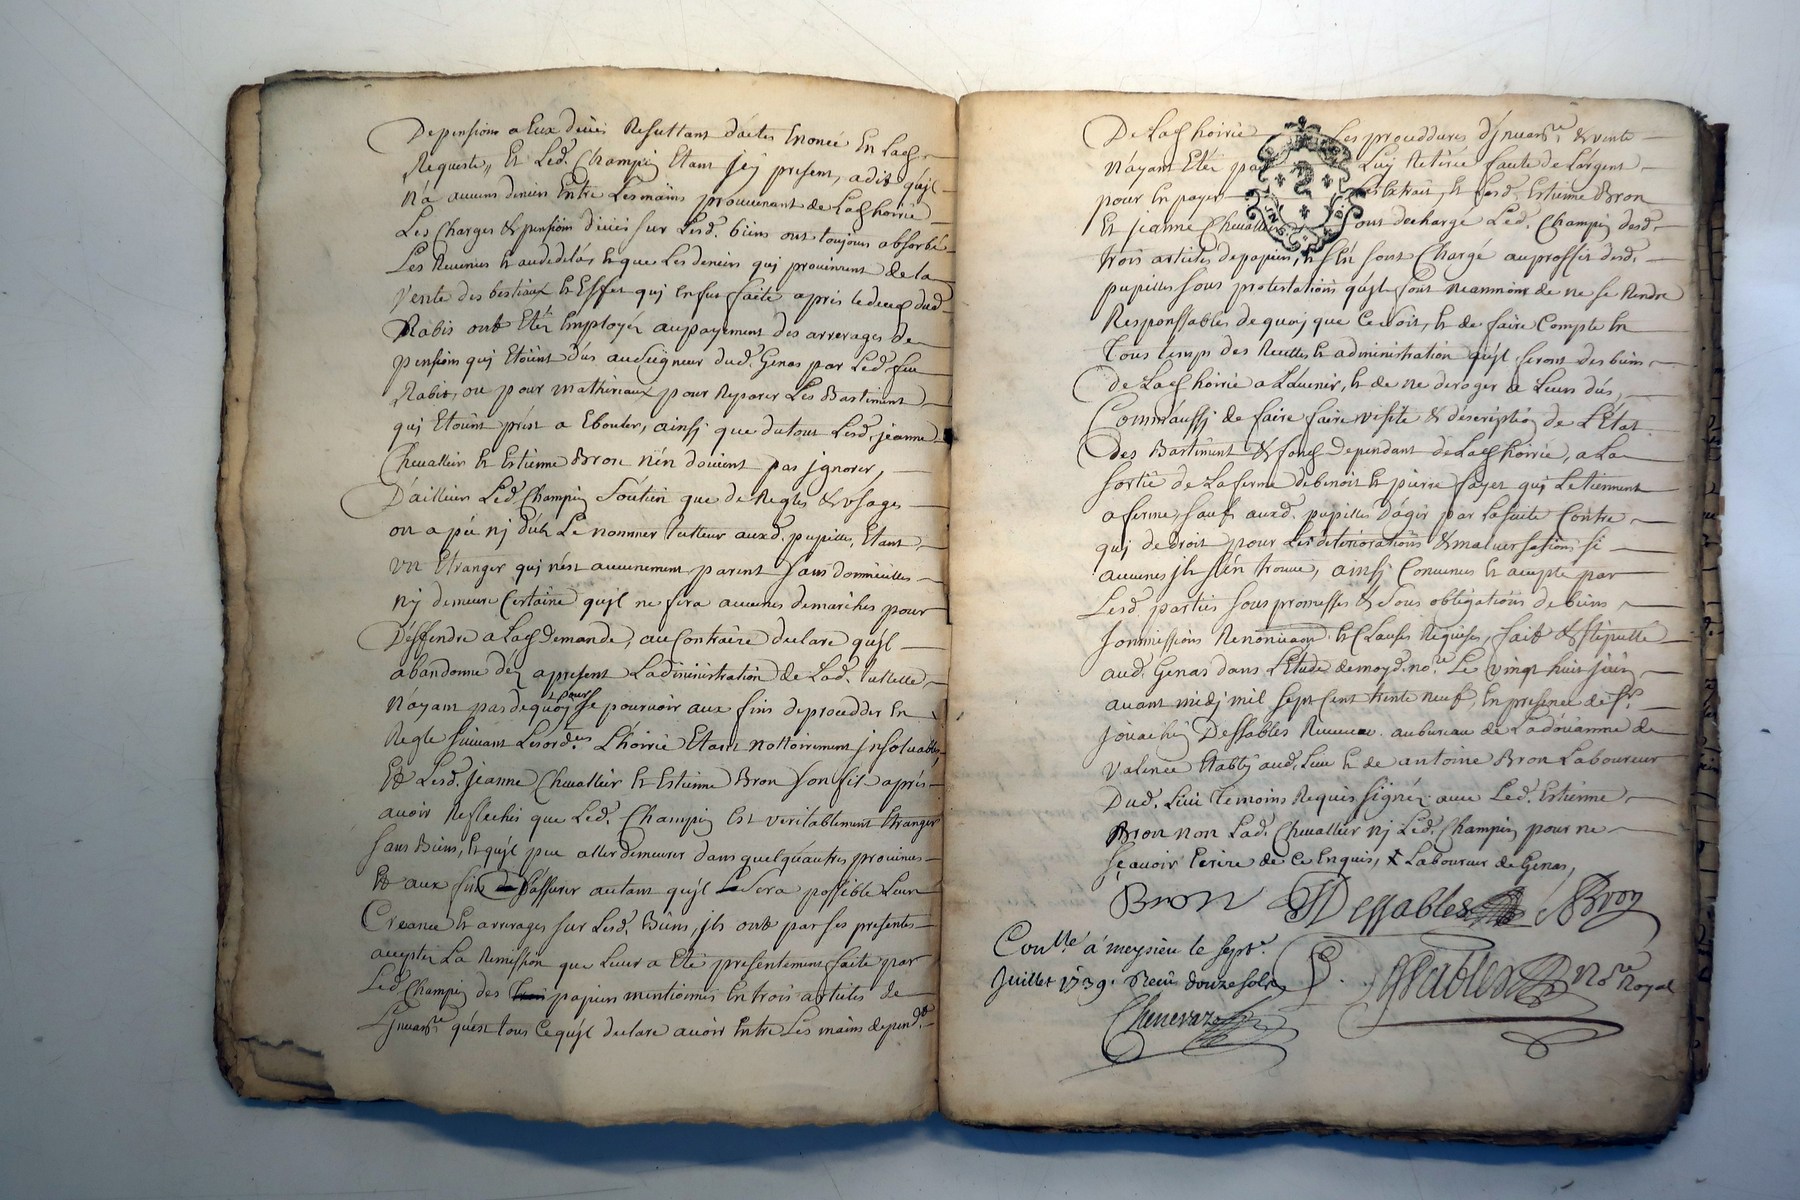 De pensions a Eux deües Resultans d'actes Enoncé En lad.
Requeste, Et Led. Champin Etant jcy present, a dit qu'jl
n'a aucuns deniers Entre Les mains prouvenant de Lad. hoirie
Les Charges & pensions deües sur Lesd. biens ont toujours absorbé
Les Revenus Et audedelà, Et que Les deniers quj provinrent de la
vente des bestiaux Et Effet quj en fut faite après le deces dud.
Rabis ont Eté Employéz au payement des arrerages de
pensions quj Etoint dûs au Seigneur dud. Genas par Led. feu
Rabis, ou pour mathériaux pour Reparer Les Bastiment
quj Etoint prést a Ebouler, ainsj que du tout Lesd. jeanne
Chevallier Et Estienne Bron n'en doivent pas jgnorer,
D'ailleurs Led. Champin Soûtien que de Regles & usages
on a pû nj dûb Le nommer tutteur auxd. pupilles, Etant
un Etranger quj n'est aucunement parent sans dommicilles
nj demeure Certaine qu'jl ne fera aucunes demarches pour
Deffendre a Lad. demande, au Contraire declare qu'jl
abandonne déz apresent L'administration de Lad. tutelle
N'ayant pas dequoy pour se pourvoir aux fins de procedder En
Regle suivant Les ord.ces L'hoirie Etant nottoirement jnsoluable,
Et Lesd. jeanne Chevallier Et Estienne Bron son fils après
avoir Reflechis que Led. Champin Est veritablement Etranger
sans Biens, Et qu'jl peu aller demeurer dans quelqu'autres provinces
Et aux fins D'assurer autant qu'jl Sera possible Leur
Creance Et arrerages sur Lesd. Biens, jls ont par ses presentes
accepter La Remission que Leur a Eté presentement faite par
Led. Champin des papiers mentionnés En trois articles de
L'jnvent.re qu'est tous Ce qu'jl declare avoir Entre Les mains depend.t
De Lad. hoirie Les proceddures d'jnvent.re & vente
N'ayant Etéz par Luy Retirée faute de L'argent
pour En payer Les Extrait, Et Lesd. Estienne Bron
Et jeanne Chevallier ont decharge Led. Champin desd.
trois articles de papiers, Et s'En sont Chargé au proffit desd.
pupilles sous protestations qu'jls font neanmoins de ne se Rendre
Responsables de quoj que Ce soit, Et de faire Compte En
Tous temps des Recettes Et administration qu'jls feront des biens
De Lad. hoirie a L'avenir, Et de ne deroger a Leurs dûs,
Comm'aussj de faire faire visite & déscription de L'état
Des Bastiment & fond dependant de Lad. hoirie, a La
Sortie de La ferme de benoit Et pierre fayet quj Le tiennent
a ferme, sauf auxd. pupilles d'agir par La suite Contre
quj de droit pour Les détériorations & malversations si
aucunes jls s'en trouve, ainsj Convenus Et accepté par
Lesd. parties sous promesses & sous obligations de biens
sommissions Renonciaon Et Clauses Réquises, fait & stipullé
aud. Genas dans L'Etude de moyd. no.re Le vingt huit juin
avant midj mil sept cent trente neuf, En presence de S.r
jouachin Dessables Receveur au bureau de La doüanne de
Valence Etably aud. Lieu & de antoine Bron Laboureur
Dud. Lieu témoins Requis signéz avec Led. Estienne
Bron non Lad. Chevallier nj Led. Champin pour ne
sçavoir Ecrire de Ce Enquis, Laboureur de Genas,
Bron Dessables ABron
Con.lle á meysieu le sept.e
Juillet 1739. Receu douze sols
Chenevaz
no.re Royal